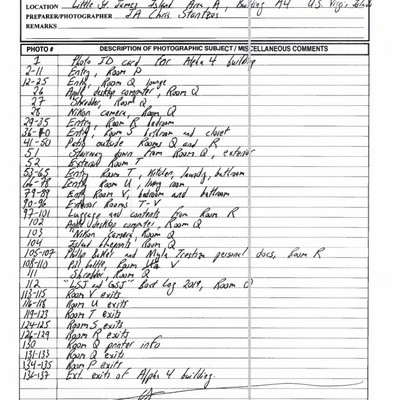 LOCATION Little St. James Island Area, A, Building A4 U.S. Virgin Islands
PREPARER/PHOTOGRAPHER IA Chris
REMARKS
PHOTO # DESCRIPTION OF PHOTOGRAPHIC SUBJECT / MISCELLANEOUS COMMENTS
1 Photo ID card for Alpha 4 building
2-11 Entry, Room P
12-25 Entry, Room Q lounge
26 Apple desktop computer, Room Q
27 Shredder, Room Q
28 Nikon camera, Room Q
29-35 Entry, Room R bedroom
36-40 Entry, Room S bedroom and closet
41-50 Patio outside Rooms Q and R
51 Stairway down from Room Q, exterior
52 Exterior Room T
53-65 Entry Room T, Kitchen, laundry, bathroom
66-78 Entry Room U, living room
79-89 Entry Room V, bedroom and bathroom
90-96 Exterior Rooms T-V
97-101 Luggage and contents from Room R
102 Apple desktop computer, Room Q
103 Nikon camera, Room Q
104 Island blueprints, Room Q
105-107 and personal docs, Room R
108-110 Pill bottle, Room V
111 Shredder, Room Q
112 "LSJ and GSJ" Boat Log 2019, Room Q
113-115 Room V exits
116-118 Room U exits
119-123 Room T exits
124-125 Room S exits
126-129 Room R exits
130 Room Q printer info
131-133 Room Q exits
134-135 Room P exits
136-137 Ext. exits of Alpha 4 building.